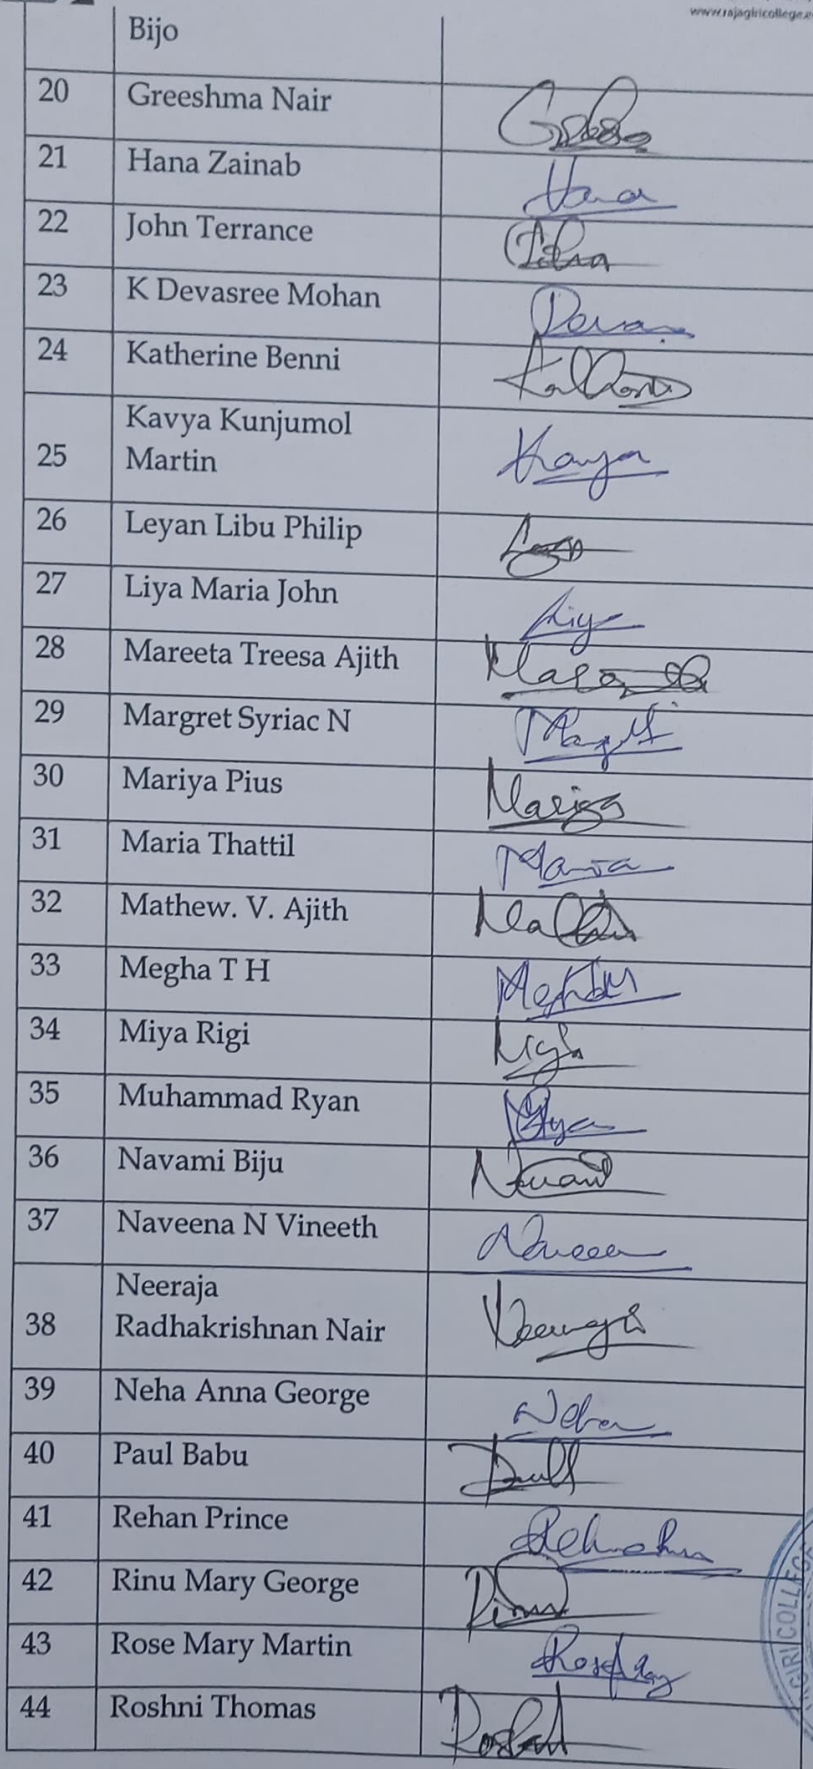 www.rajagiricollege.e
Bijo
20 Greeshma Nair
21 Hana Zainab Hana
22 John Terrance John
23 K Devasree Mohan
24 Katherine Benni
25 Kavya Kunjumol
Martin Kavya
26 Leyan Libu Philip
27 Liya Maria John Liya
28 Mareeta Treesa Ajith
29 Margret Syriac N
30 Mariya Pius Mariya
31 Maria Thattil Maria
32 Mathew. V. Ajith
33 Megha T H
34 Miya Rigi
35 Muhammad Ryan
36 Navami Biju
37 Naveena N Vineeth
38 Neeraja
Radhakrishnan Nair
39 Neha Anna George Neha
40 Paul Babu
41 Rehan Prince
42 Rinu Mary George Rinu
43 Rose Mary Martin
44 Roshni Thomas
GIRI COLLEGE